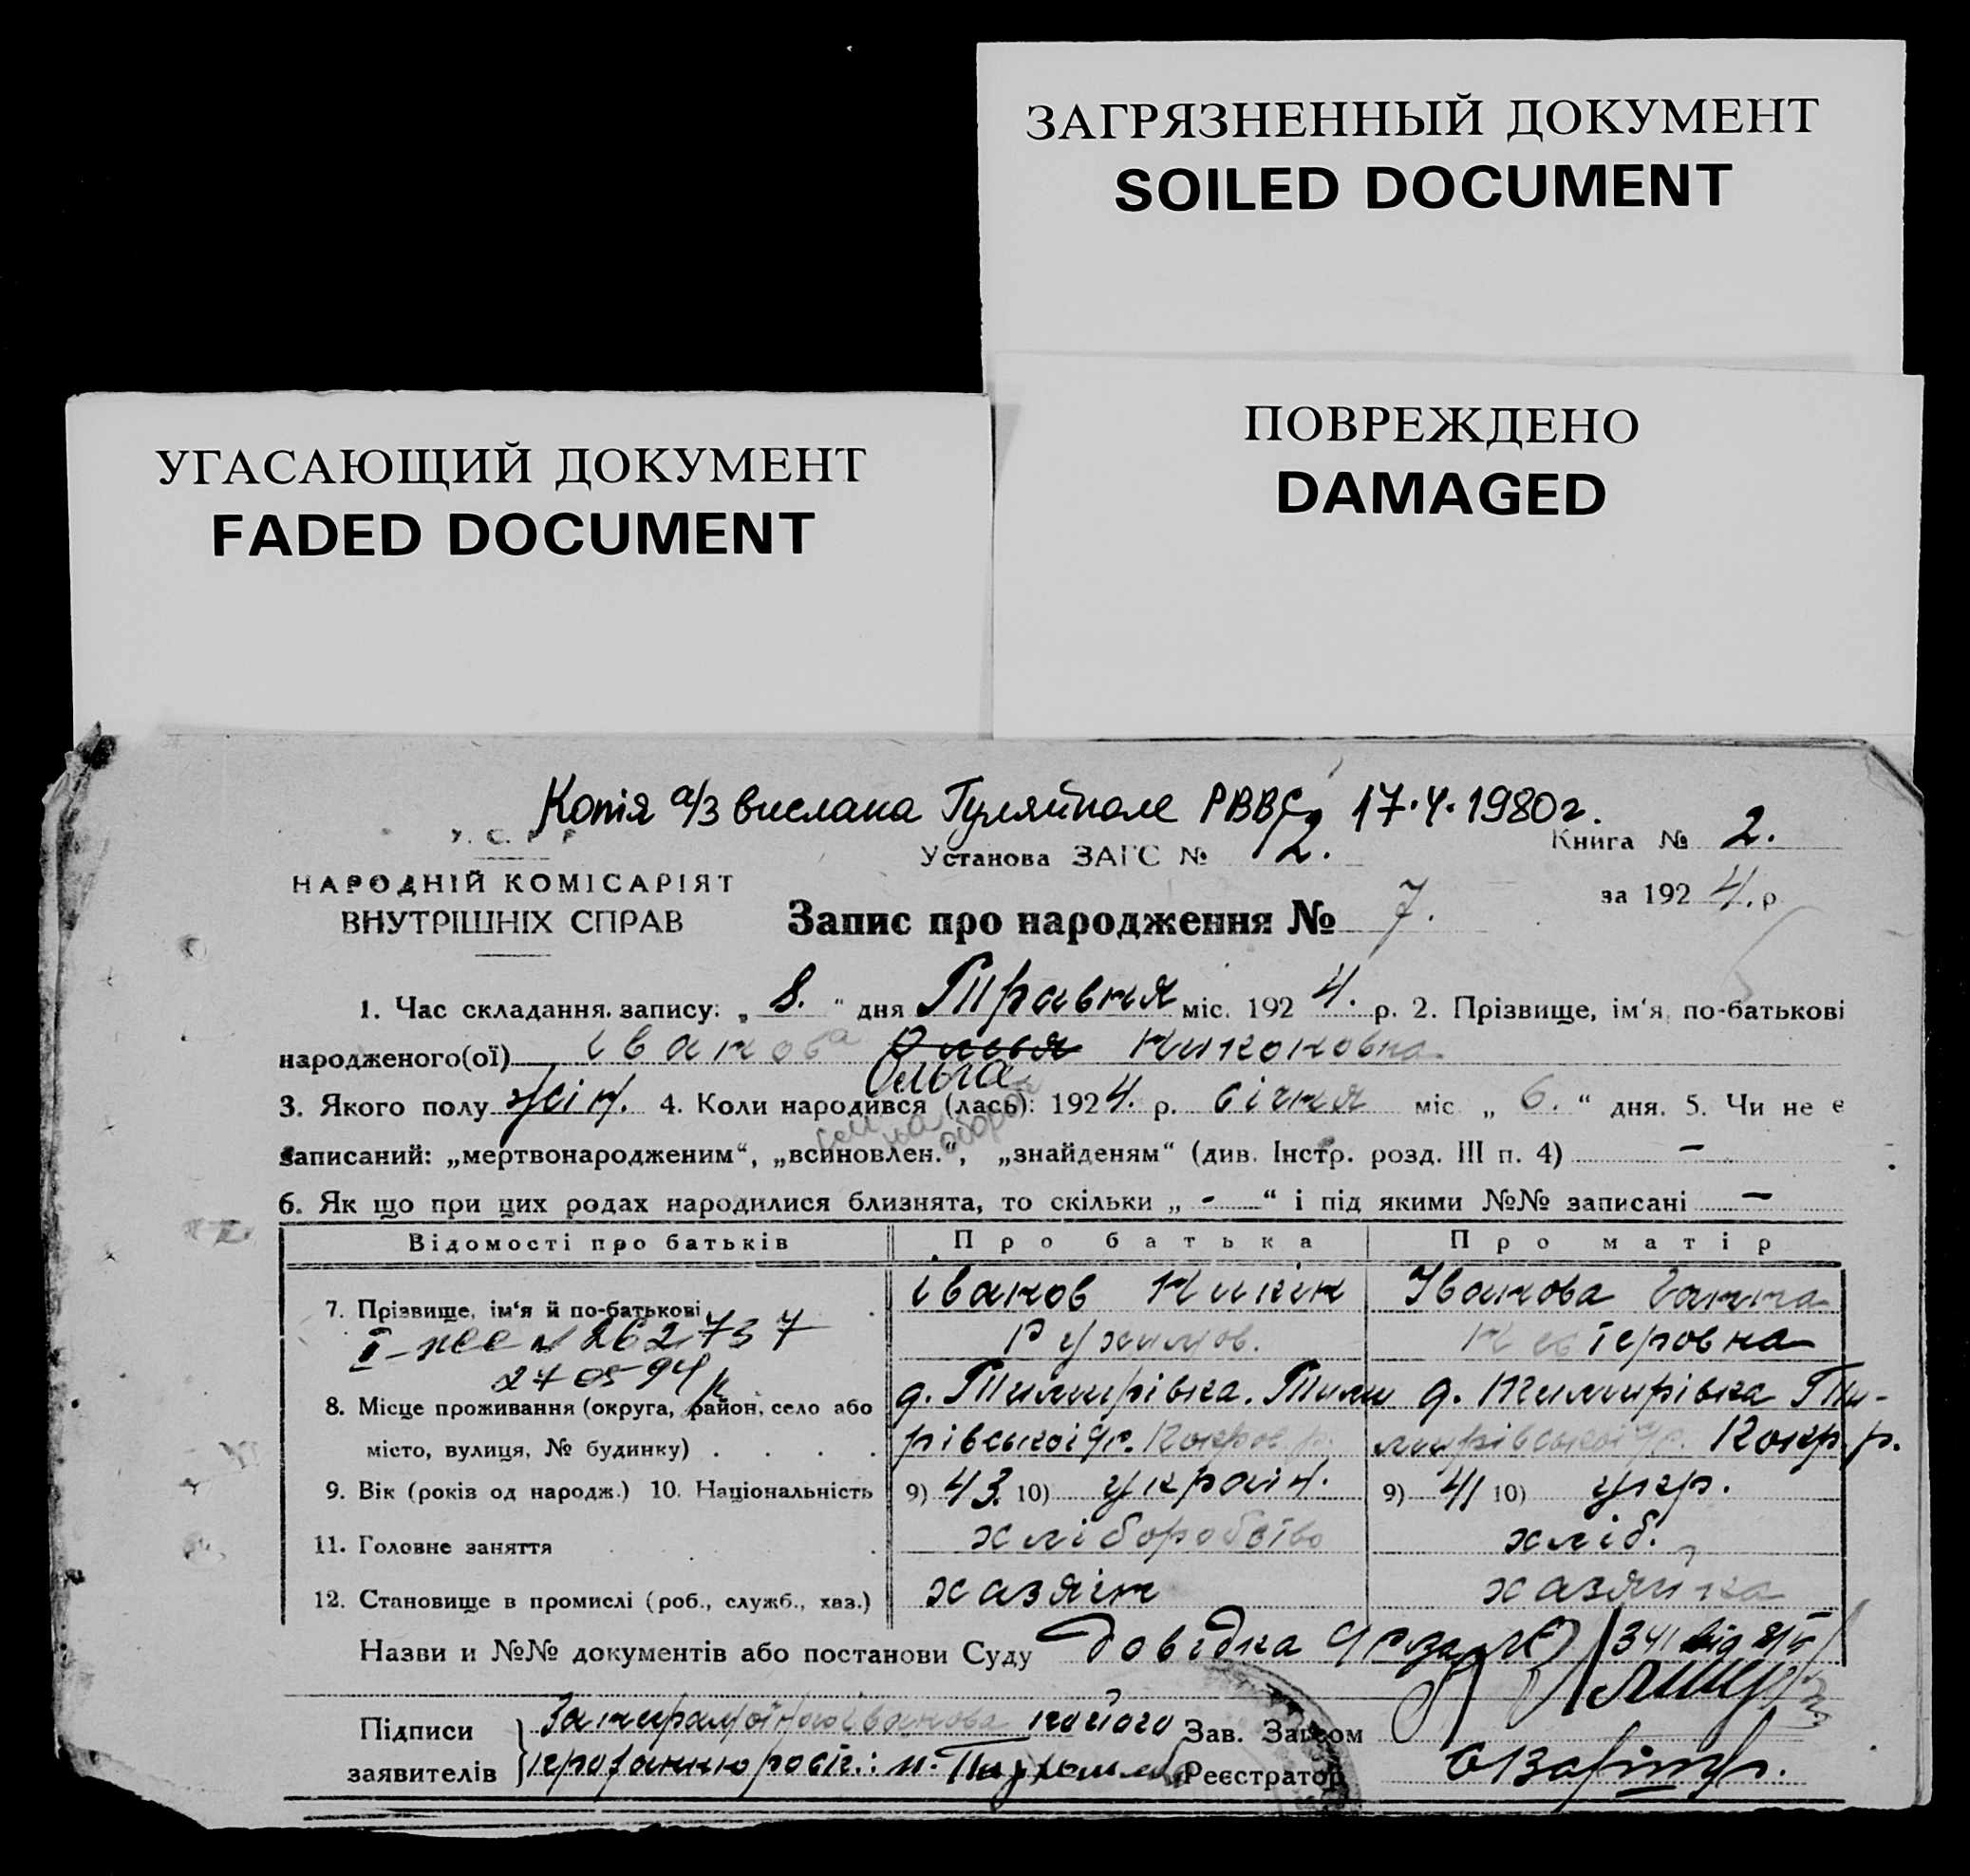 ЗАГРЯЗНЕННЫЙ ДОКУМЕНТ
SOILED DOCUMENT
ПОВРЕЖДЕНО
DAMAGED
УГАСАЮЩИЙ ДОКУМЕНТ
FADED DOCUMENT
Копія а/з вислана Гуляйполе РВВС 17.4.1980 г.
У. С. Р. Р
Установа ЗАГС № 2.
Книга № 2.
НАРОДНІЙ КОМІСАРІЯТ
ВНУТРІШНІХ СПРАВ
за 1924. р
Запис про народження № 7.
1. Час складання запису: „ 8. “ дня Травня міс. 192 4. р. 2. Прізвище, ім‘я, по-батькові
народженого(ої) Іванова Никоновна
Ольга
3. Якого полу жін. 4. Коли народився (лась): 1924. р. січня міс „ 6. “ дня. 5. Чи не є
записаний: „мертвонародженим“, „всиновлен.“, „знайденям“ (див. Інстр. розд. III п. 4) –
6. Як що при цих родах народилися близнята, то скільки „ - “ і під якими №№ записані –
Відомості про батьків Про батька Про матір
7. Прізвище, ім‘я й по-батькові Іванов Никін Іванова Ганна
I - 262737
27 05 94
8. Місце проживання (округа, район, село або д. Тимирівка. Тими д. Тимирівка Ти-
місто, вулиця, № будинку) . . . . рівської Покров р. мирівської Покр. р.
9. Вік (років од народж.) 10. Національність 9) 43. 10) україн. 9) 41 10) укр.
11. Головне заняття хліборобство хліб.
12. Становище в промислі (роб., служб., хаз.) хазяїн хазяйка
Назви и №№ документів або постанови Суду Довідка за № 341 від
Підписи Іванова Зав. Загсом
заявителів Реєстратор